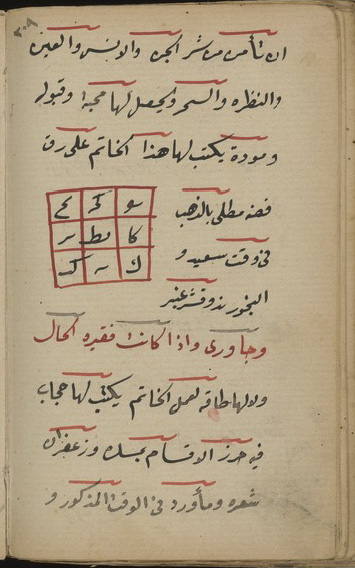 ٢٠٩
ان تأمن من شر الجن والانس والعين
والنظره والسحر ويحصل لها محبه وقبول
ومودة يكتب لها هذا الخاتم على رق
فضه مطلى بالذهب
فى وقت سعيد و
البخور ند وقشر عنبر
وجاورى واذا كانت فقيره الحال
ولالها طاقه لعمل الخاتم يكتب لها حجاب
فى حرز الاقسام بمسك وزعفران
شعره وماورد فى الوقت المذكور و